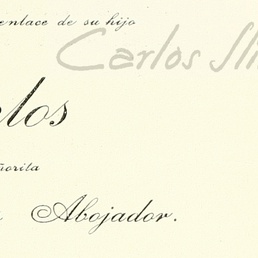 enlace de su hijo
Carlos Sli
los
ñorita
Abojador.